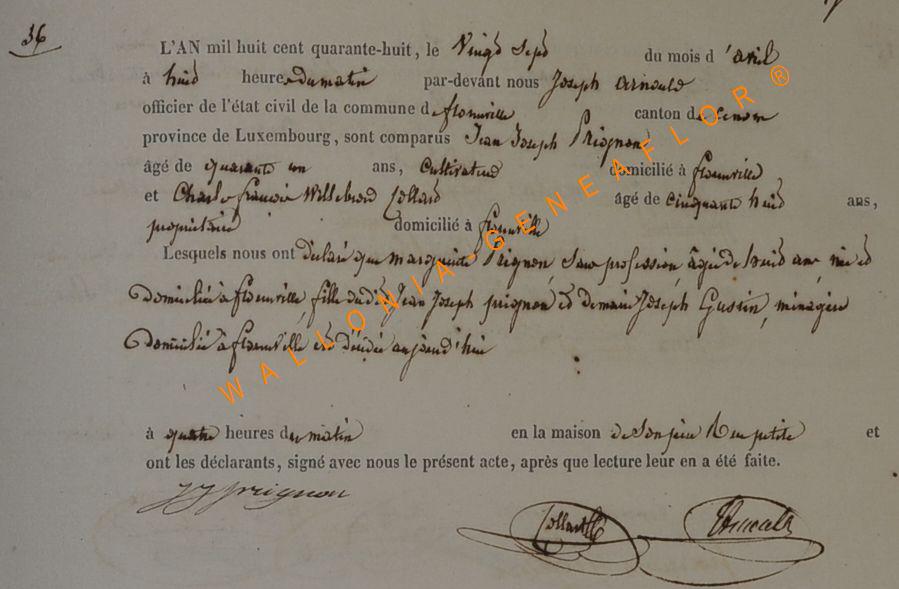 36
L'AN mil huit cent quarante-huit, le Vingt Sept du mois d'avril
à huit heures du matin par-devant nous Joseph Arnould
officier de l'état civil de la commune de florenville canton de
province de Luxembourg, sont comparus Jean Joseph Prignon
âgé de quarante un ans, Cultivateur domicilié à florenville
et Charles françois Willebrord Collard âgé de cinquante huit ans,
propriétaire domicilié à florenville
Lesquels nous ont déclaré que marguerite Prignon, Sans profession, âgée de huit ans, née et
Domiciliée à florenville, fille dudit Jean Joseph prignon et de marie Joseph Gustin, ménagère
Domiciliée à florenville est décédée aujourd'hui
à quatre heures du matin en la maison de Son père Rue petite et
ont les déclarants, signé avec nous le présent acte, après que lecture leur en a été faite.
JJ prignon
Collard Arnould
WALLONIA-GENEAFLOR ®